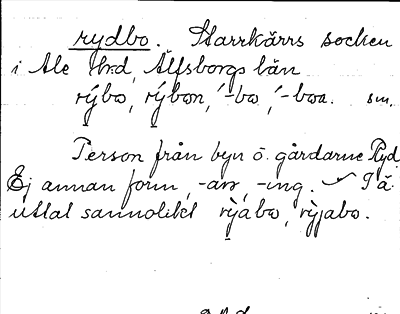 rydbo. Starrkärrs socken
i Ale hrd, Älfsborgs län
rýbo, rýbon, ´-bo, ´-boa. sm.
Person från byn o. gårdarne Ryd.
Ej annan form, -arr, -ing.
uttal sannolikt rỳabo, rỳjabo.